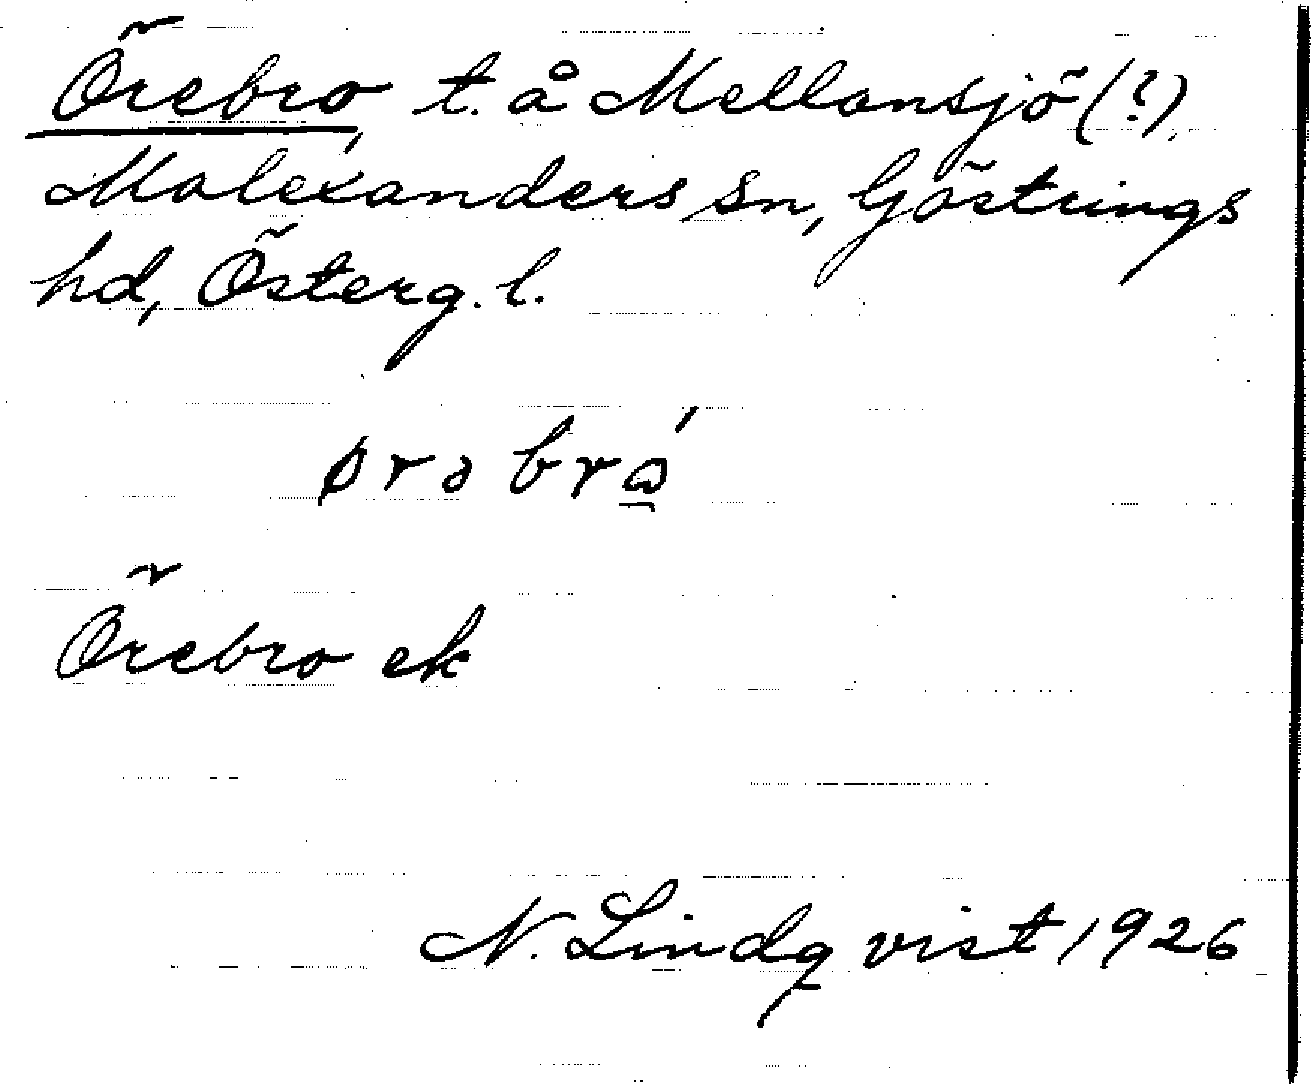 Örebro, t. å Mellansjö (?),
Malexanders sn, Göstrings
hd, Österg. l.
ørəbrώ̱
Örebro ek
N. Lindqvist 1926